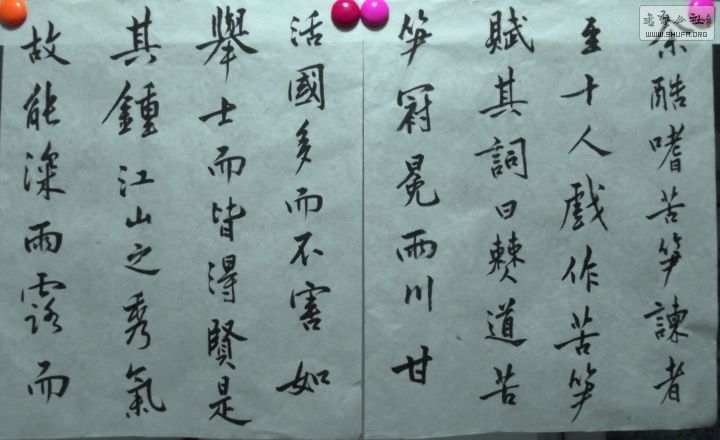 余酷嗜苦笋諫者
至十人戲作苦笋
賦其詞曰僰道苦
笋冠冕兩川甘
活國多而不害如
舉士而皆得賢是
其鍾江山之秀氣
故能深雨露而
书法公社
WWW.SHUFA.ORG